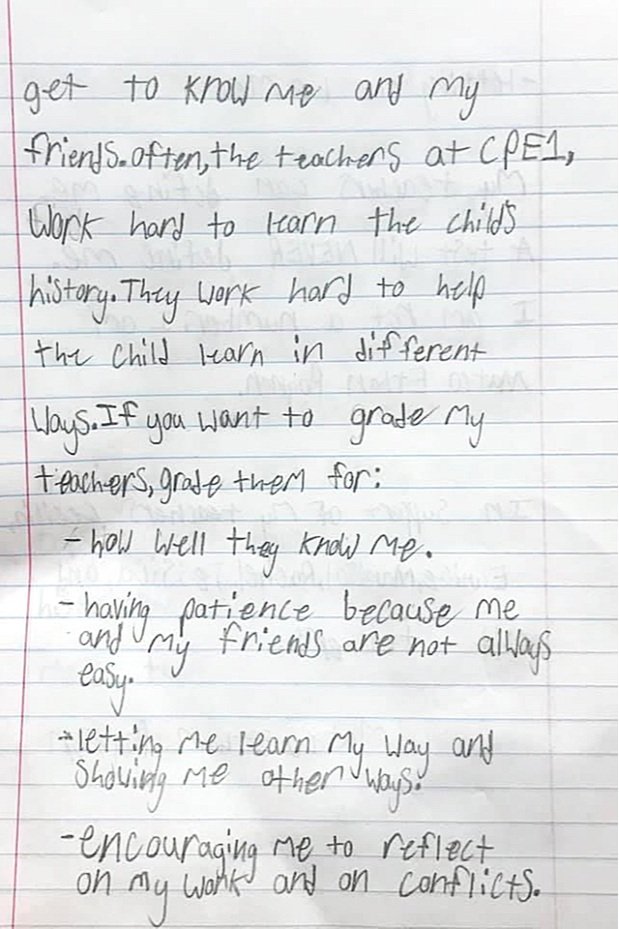 get to know me and my
friends.often,the teachers at CPE1,
work hard to learn the child's
history.They work hard to help
the child learn in different
ways.If you want to grade my
teachers,grade them for:
- how well they know me.
- having patience because me
and my friends are not always
easy.
- letting me learn my way and
showing me other ways.
- encouraging me to reflect
on my work and on conflicts.